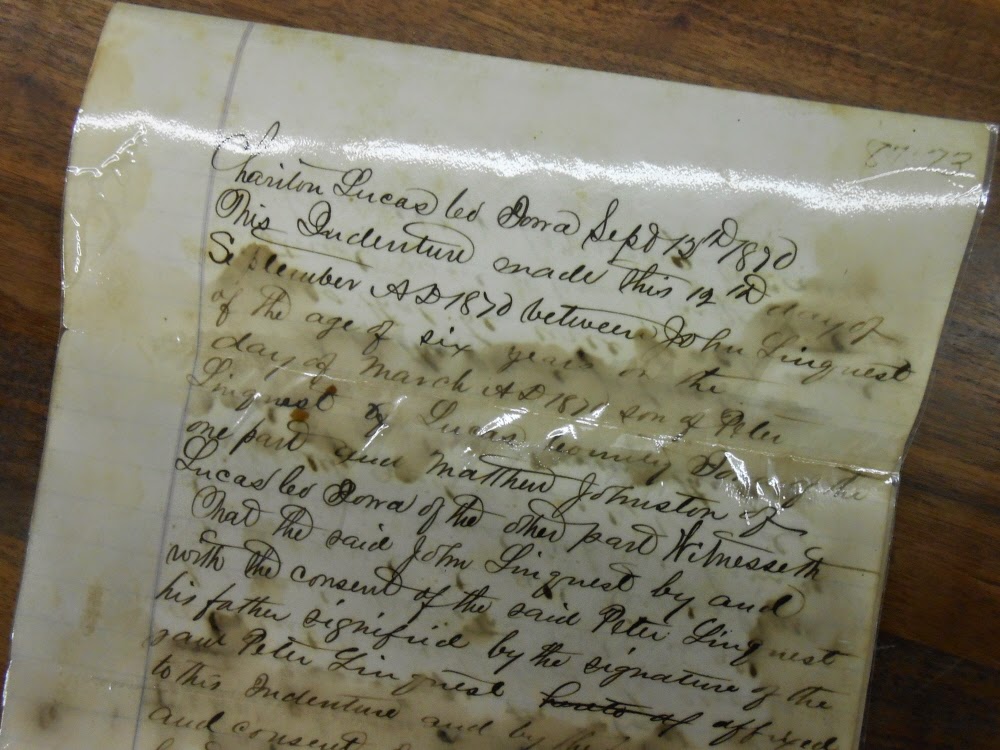 87-73
Chariton Lucas Co Iowa Sept 12th 1870
This Indenture made this 12th day of
September AD 1870 between John Linquest
of the age of six years on the
day of March AD 1870 son of Peter
Linquest of Lucas County Iowa of the
one part and Matthew Johnston of
Lucas Co Iowa of the other part Witnesseth
That the said John Linquest by and
with the consent of the said Peter Linquest
his father signified by the signature of the
said Peter Linquest affixed
to this Indenture and by
and consent